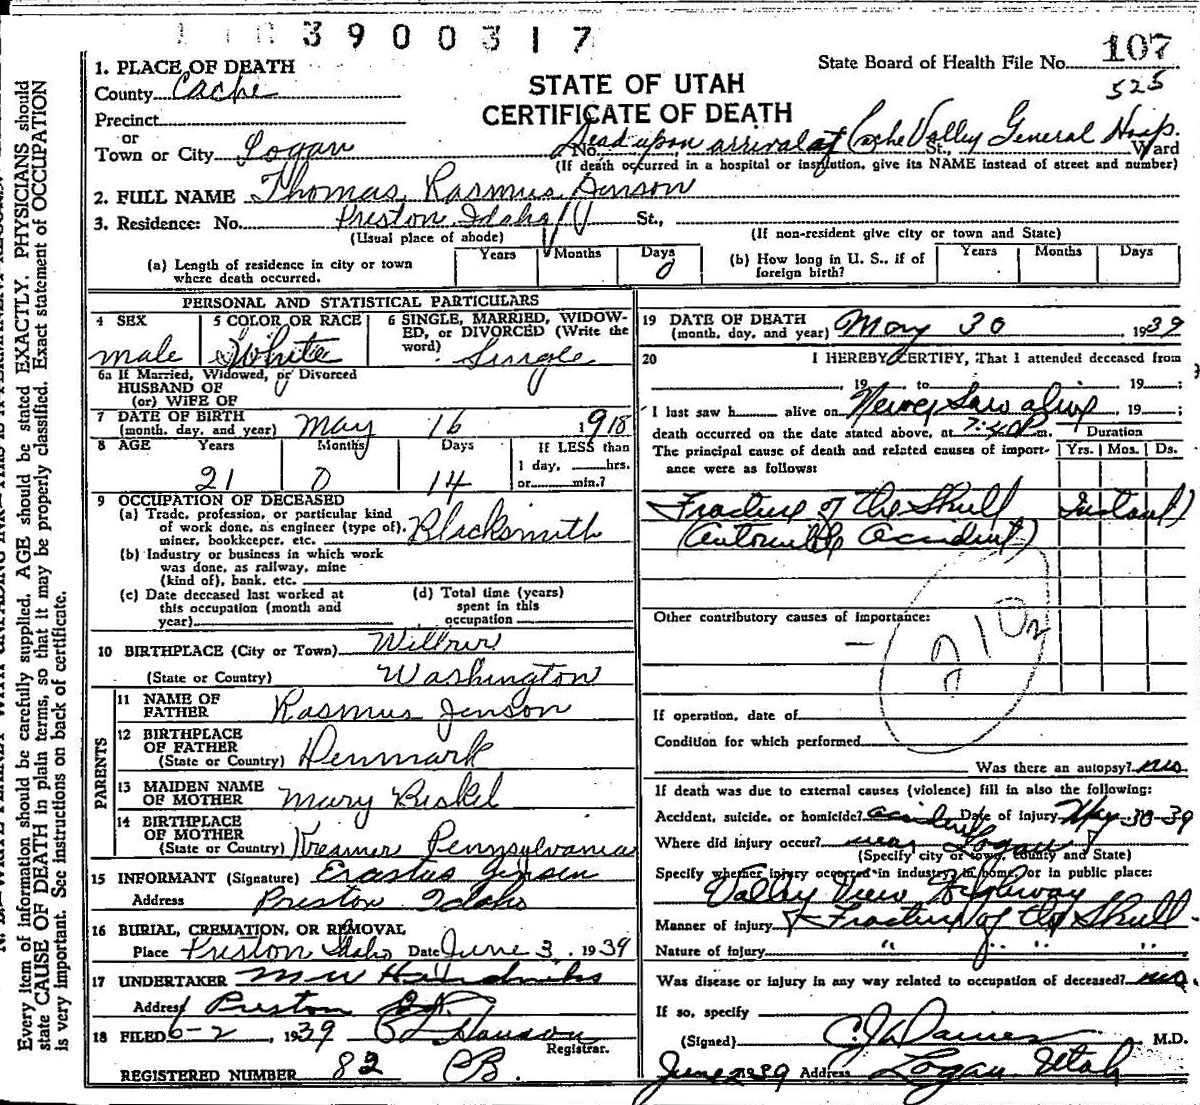 3900317
State Board of Health File No. 107
525
1. PLACE OF DEATH
County Cache
STATE OF UTAH
CERTIFICATE OF DEATH
Precinct
or
Town or City Logan No. Dead upon arrival at Cache Valley General Hosp. St., Ward
(If death occurred in a hospital or institution, give its NAME instead of street and number)
2. FULL NAME Thomas Rasmus Jenson
3. Residence: No. Preston Idaho St.,
(Usual place of abode) (If non-resident give city or town and State)
(a) Length of residence in city or town where death occurred. Years Months Days 0
(b) How long in U. S., if of foreign birth? Years Months Days
PERSONAL AND STATISTICAL PARTICULARS
4 SEX male
5 COLOR OR RACE White
6 SINGLE, MARRIED, WIDOWED, or DIVORCED (Write the word) Single
6a If Married, Widowed, or Divorced
HUSBAND OF
(or) WIFE OF
7 DATE OF BIRTH (month, day, and year) May 16 1918
8 AGE Years 21 Months 0 Days 14 If LESS than 1 day, hrs. or min.?
9 OCCUPATION OF DECEASED
(a) Trade, profession, or particular kind of work done, as engineer (type of), miner, bookkeeper, etc. Blacksmith
(b) Industry or business in which work was done, as railway, mine (kind of), bank, etc.
(c) Date deceased last worked at this occupation (month and year)
(d) Total time (years) spent in this occupation
10 BIRTHPLACE (City or Town) Wilbur
(State or Country) Washington
PARENTS
11 NAME OF FATHER Rasmus Jenson
12 BIRTHPLACE OF FATHER (State or Country) Denmark
13 MAIDEN NAME OF MOTHER Mary
14 BIRTHPLACE OF MOTHER (State or Country) Kreamer Pennysylvania
15 INFORMANT (Signature) Erastus Jensen
Address Preston Idaho
16 BURIAL, CREMATION, OR REMOVAL
Place Preston Idaho Date June 3, 1939
17 UNDERTAKER M W Hendricks
Address Preston
18 FILED 6-2, 1939 Hanson
Registrar.
REGISTERED NUMBER 82 PB.
19 DATE OF DEATH (month, day, and year) May 30 1939
20 I HEREBY CERTIFY, That I attended deceased from
19 to 19 ;
I last saw h alive on Never Saw alive 19 ;
death occurred on the date stated above, at 7:40 P m.
The principal cause of death and related causes of importance were as follows: Duration Yrs. Mos. Ds.
Fracture of the Skull Instant
(automobile accident)
Other contributory causes of importance:
210
If operation, date of
Condition for which performed
Was there an autopsy? no
If death was due to external causes (violence) fill in also the following:
Accident, suicide, or homicide? accident Date of injury May-30-39
Where did injury occur? near Logan
(Specify city or town, county and State)
Specify whether injury occurred in industry, in home, or in public place:
Valley View Highway
Manner of injury Fracture of the Skull
Nature of injury " " "
Was disease or injury in any way related to occupation of deceased? no
If so, specify
(Signed) C. J. Daines M.D.
June 2 39 Address Logan Utah
Every item of information should be carefully supplied. AGE should be stated EXACTLY. PHYSICIANS should
state CAUSE OF DEATH in plain terms, so that it may be properly classified. Exact statement of OCCUPATION
is very important. See instructions on back of certificate.